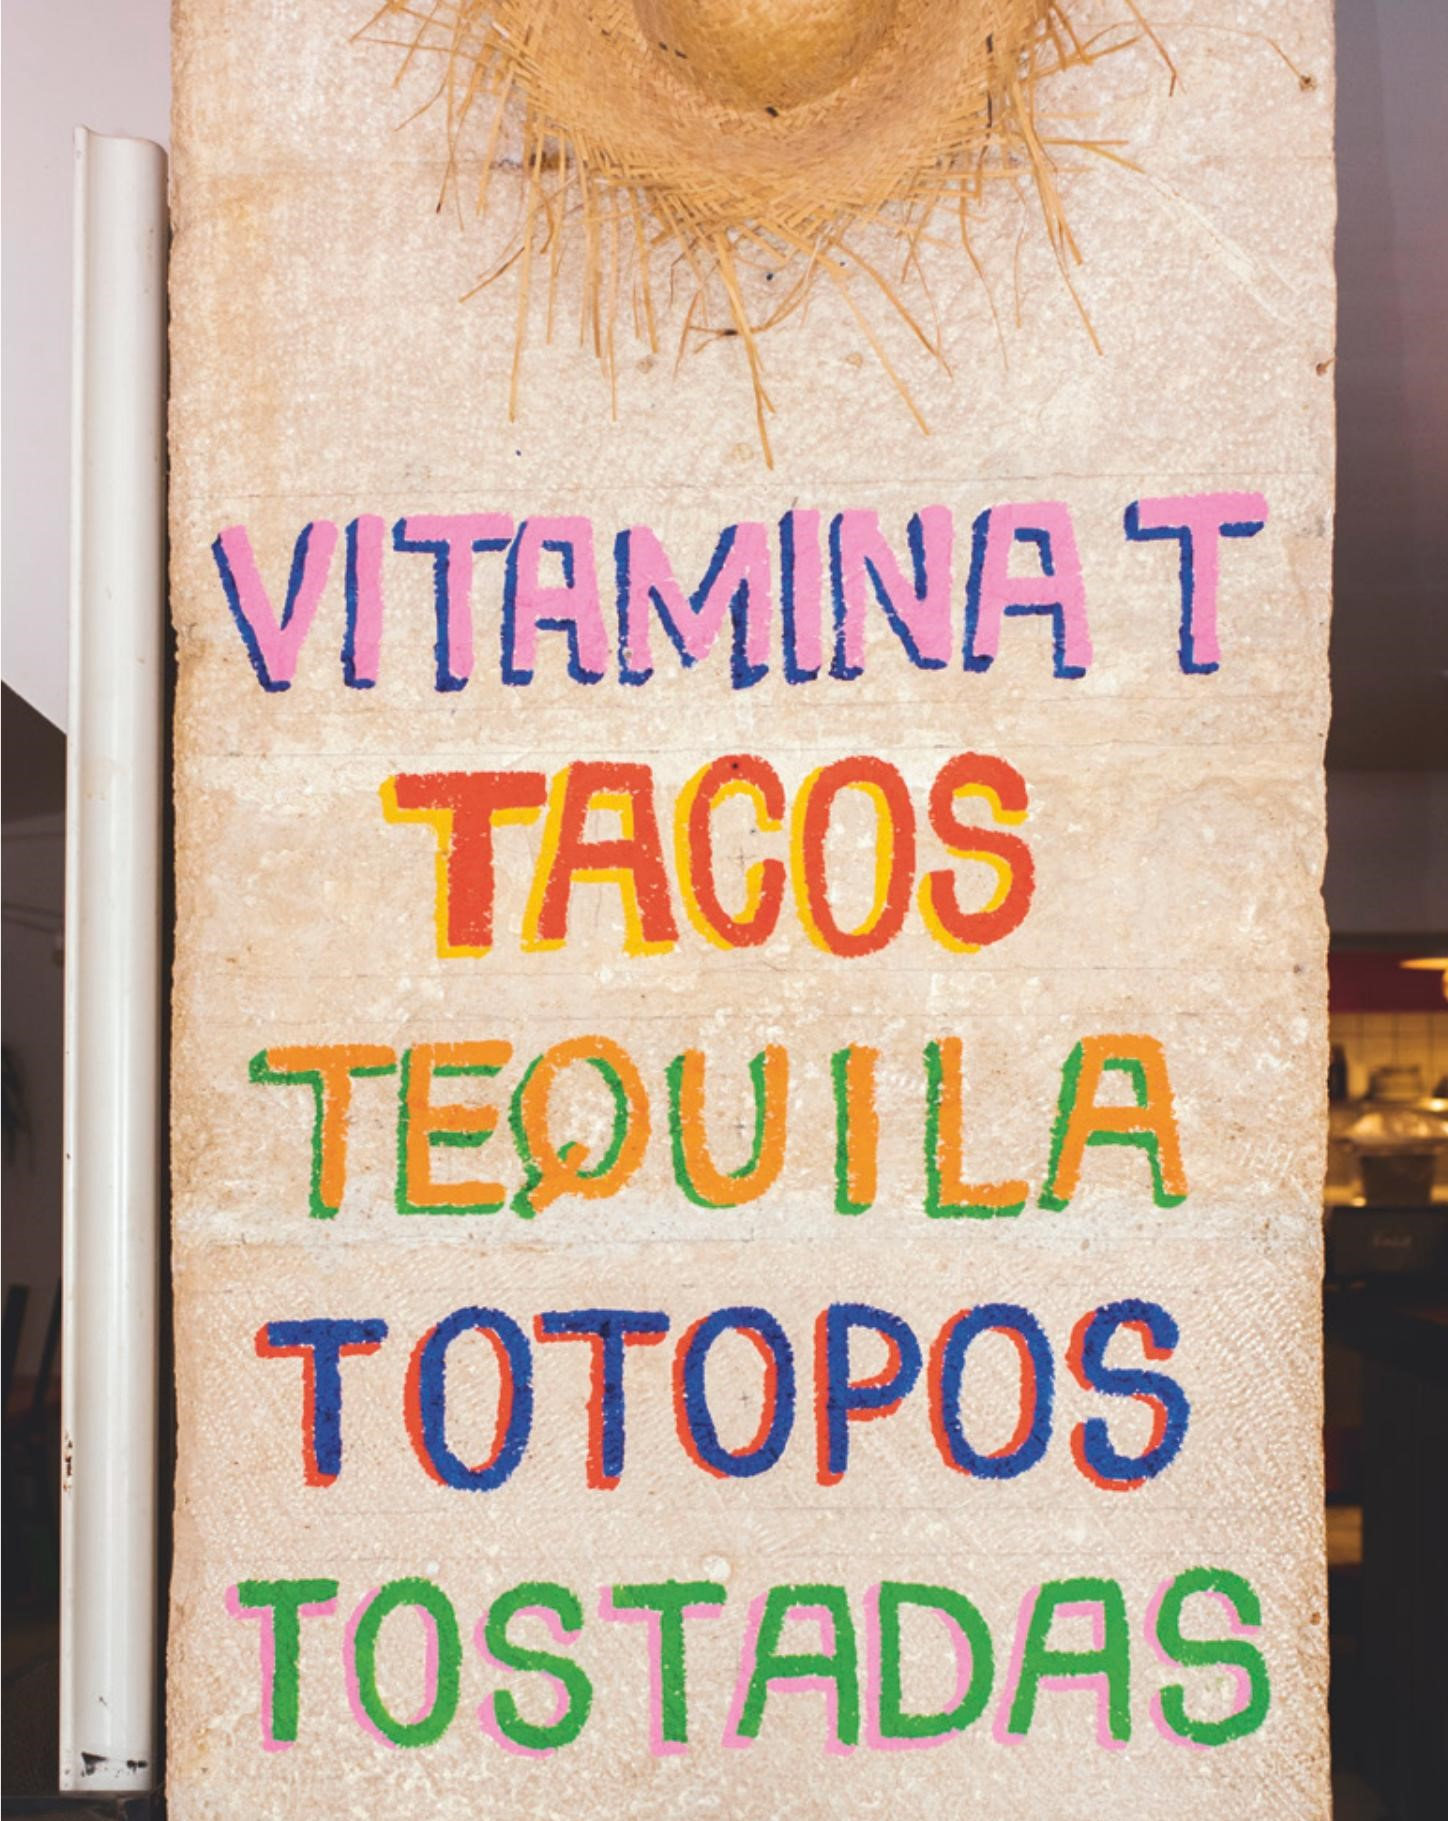 VITAMINA T
TACOS
TEQUILA
TOTOPOS
TOSTADAS